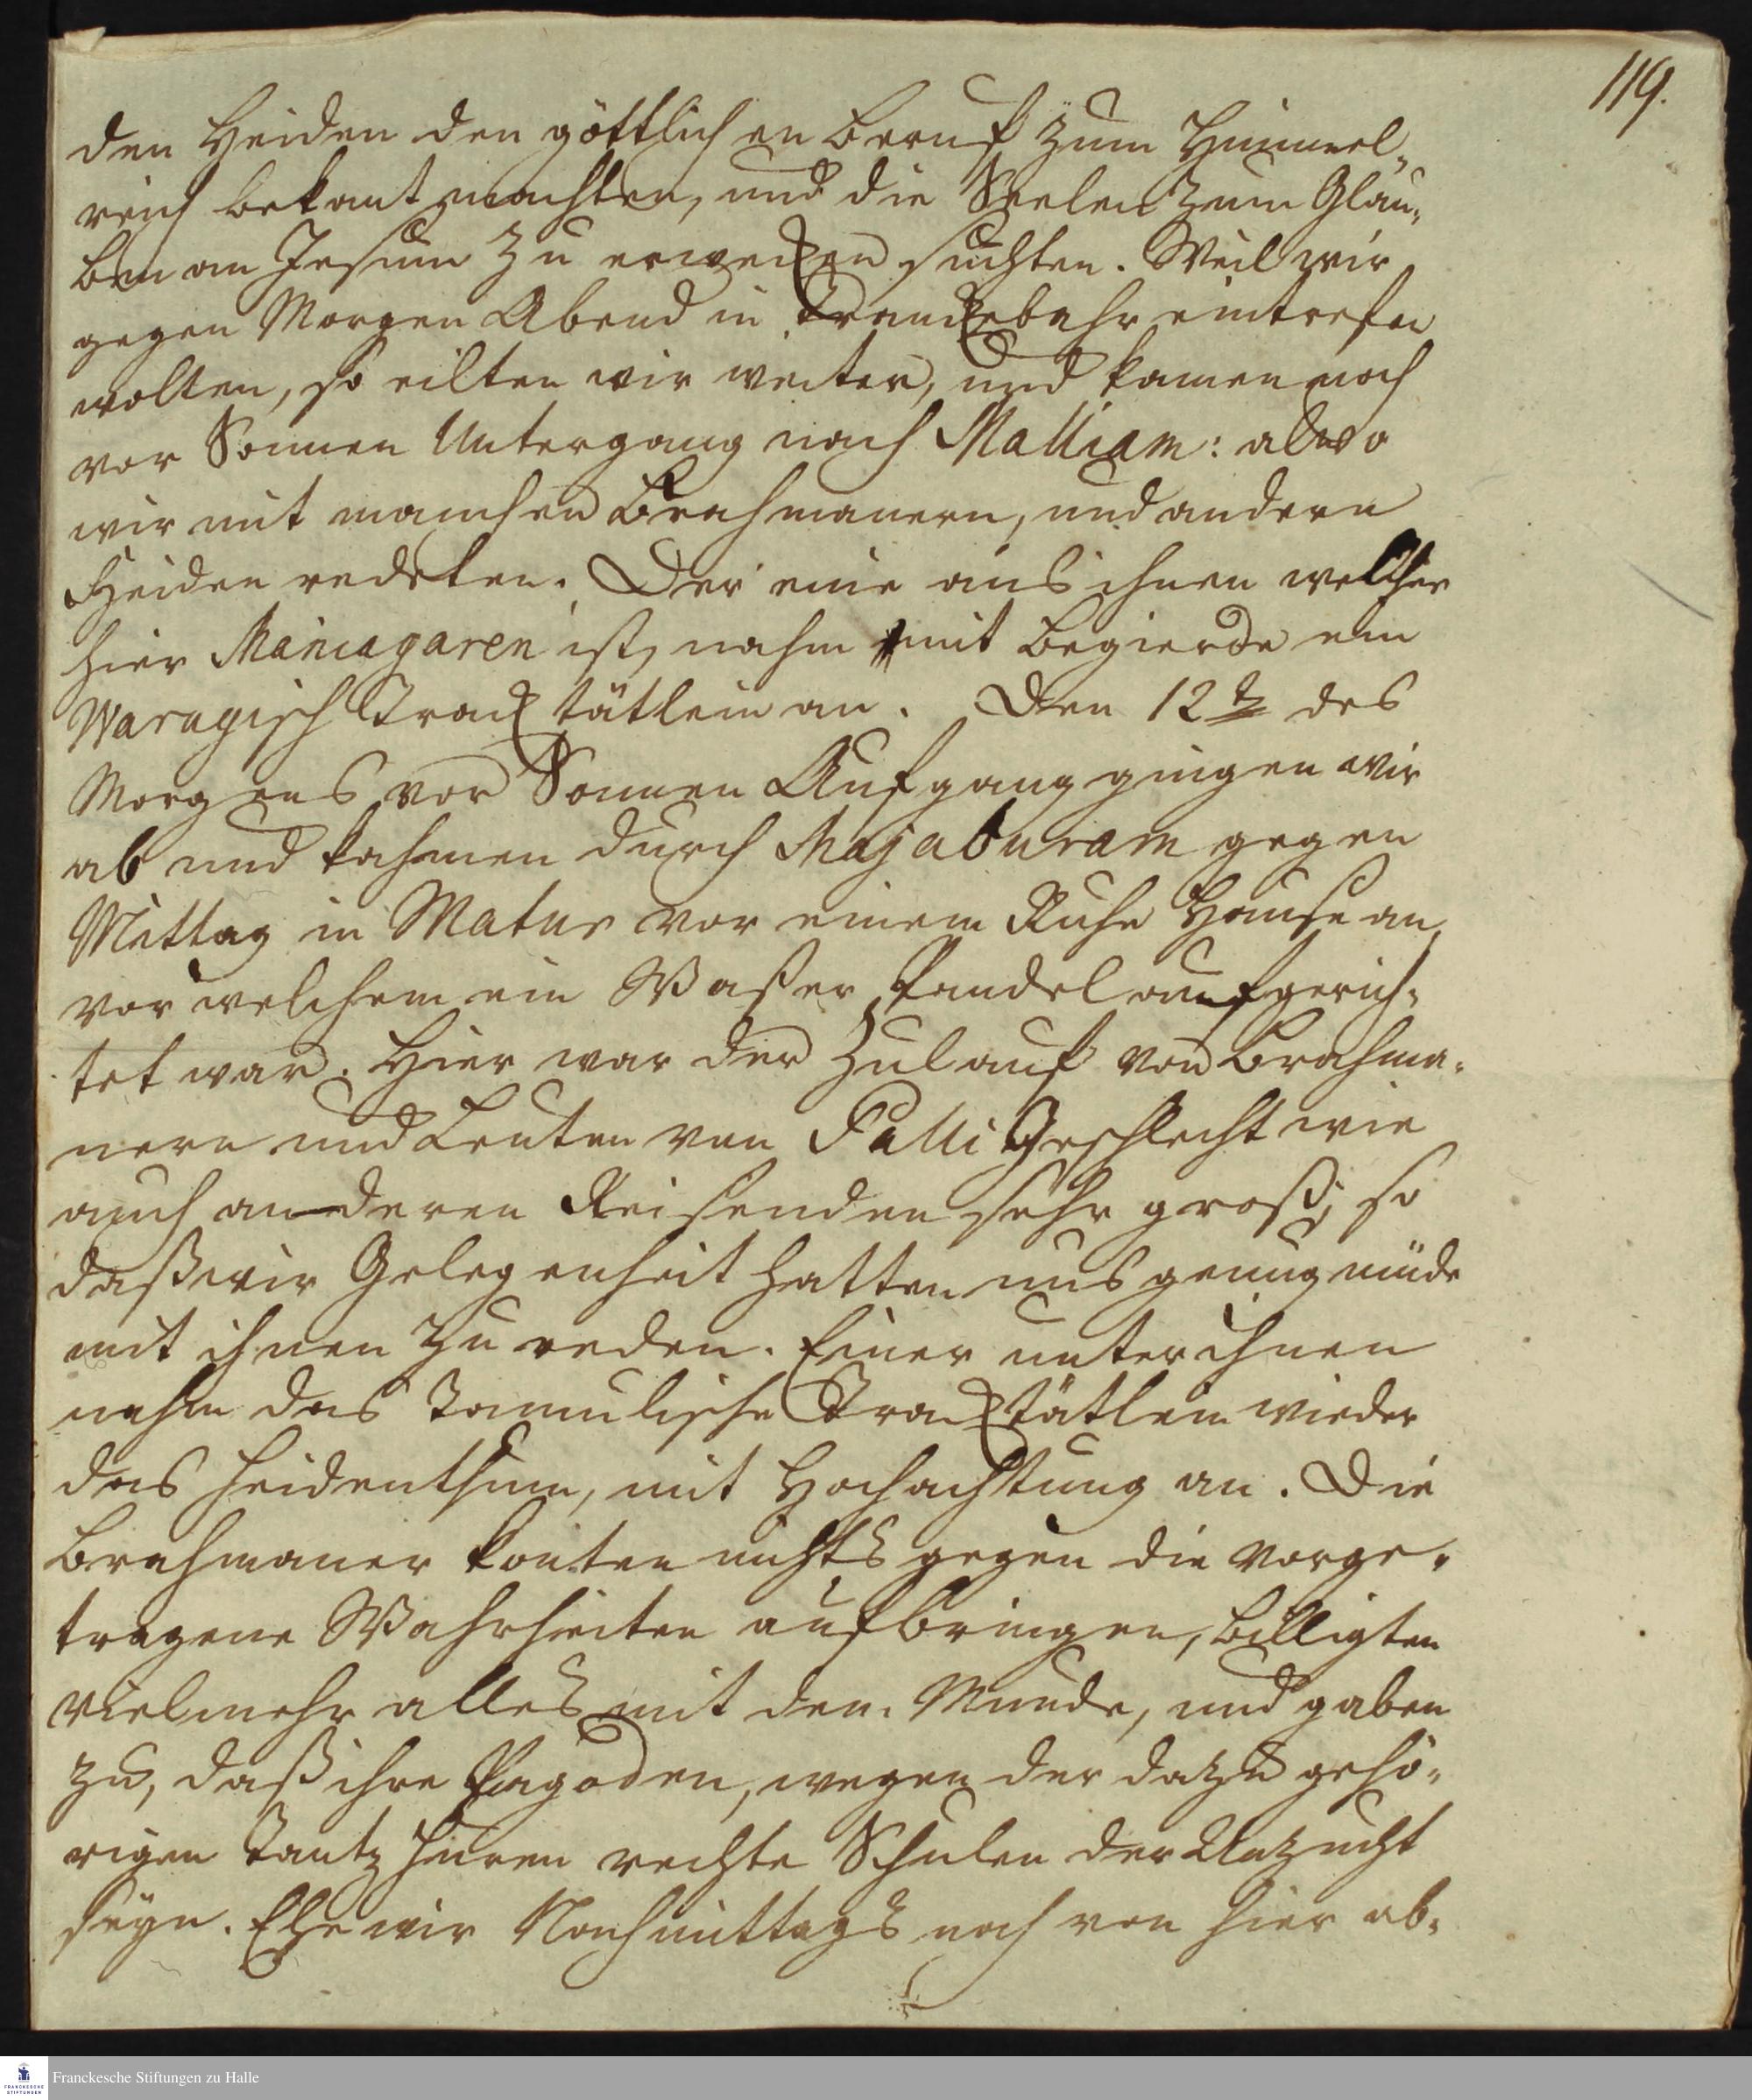 119.
den Heiden den göttlichen Beruf zum Himmel„
reich bekant machten, und die Seelen zum Glau„
ben an Jesum zu erwecken suchten. Weil wir
gegen Morgen Abend in Tranckebahr eintrefen
wolten, so eilten wir weiter, und kamen noch
vor Sonnen Untergang nach Malliam: alwo
wir mit manchen Brahmanern, und andern
Heiden redeten. Der eine aus ihnen welcher
hier Maniagaren ist, nahm mit Begierde ein
Warugisch Tracktätlein an. Den 12t. des
Morgens vor Sonnen Aufgang gingen wir
ab und kahmen durch Majaburam gegen
Mittag in Matur vor einem Ruhe Hause an,
vor welchem ein Waßer Pandel aufgerich„
tet war. Hier war der Zulauf von Brahma„
nern und Leuten von Palli Geschlecht wie
auch anderen Reisenden sehr groß, so
daß wir Gelegenheit hatten uns genug müde
mit ihnen zu reden. Einer unter ihnen
nahm das Tamulische Tracktätlein wieder
das Heidenthum, mit Hochachtung an. Die
Brahmaner konten nichts gegen die vorge„
tragene Wahrheiten aufbringen, billigten
vielmehr alles mit dem Munde, und gaben
zu, daß ihre Pagoden, wegen der dazu gehö„
rigen Tantz Huren rechte Schulen der Unzucht
seyn. Ehe wir Nachmittags noch von hier ab„
Franckesche Stiftungen zu Halle
FRANCKESCHE
STIFTUNGEN